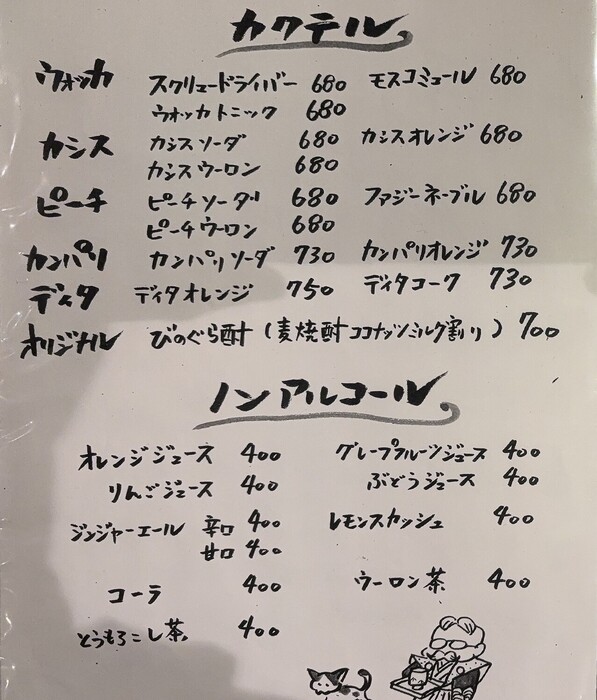 カクテル
ウォッカ スクリュードライバー 680 モスコミュール 680
ウォッカトニック 680
カシス カシスソーダ 680 カシスオレンジ 680
カシスウーロン 680
ピーチ ピーチソーダ 680 ファジーネーブル 680
ピーチウーロン 680
カンパリ カンパリソーダ 730 カンパリオレンジ 730
ディタ ディタオレンジ 750 ディタコーク 730
オリジナル びのぐら酎 (麦焼酎ココナッツミルク割り) 700
ノンアルコール
オレンジジュース 400 グレープフルーツジュース 400
りんごジュース 400 ぶどうジュース 400
ジンジャーエール 辛口 400 レモンスカッシュ 400
甘口 400
コーラ 400 ウーロン茶 400
とうもろこし茶 400